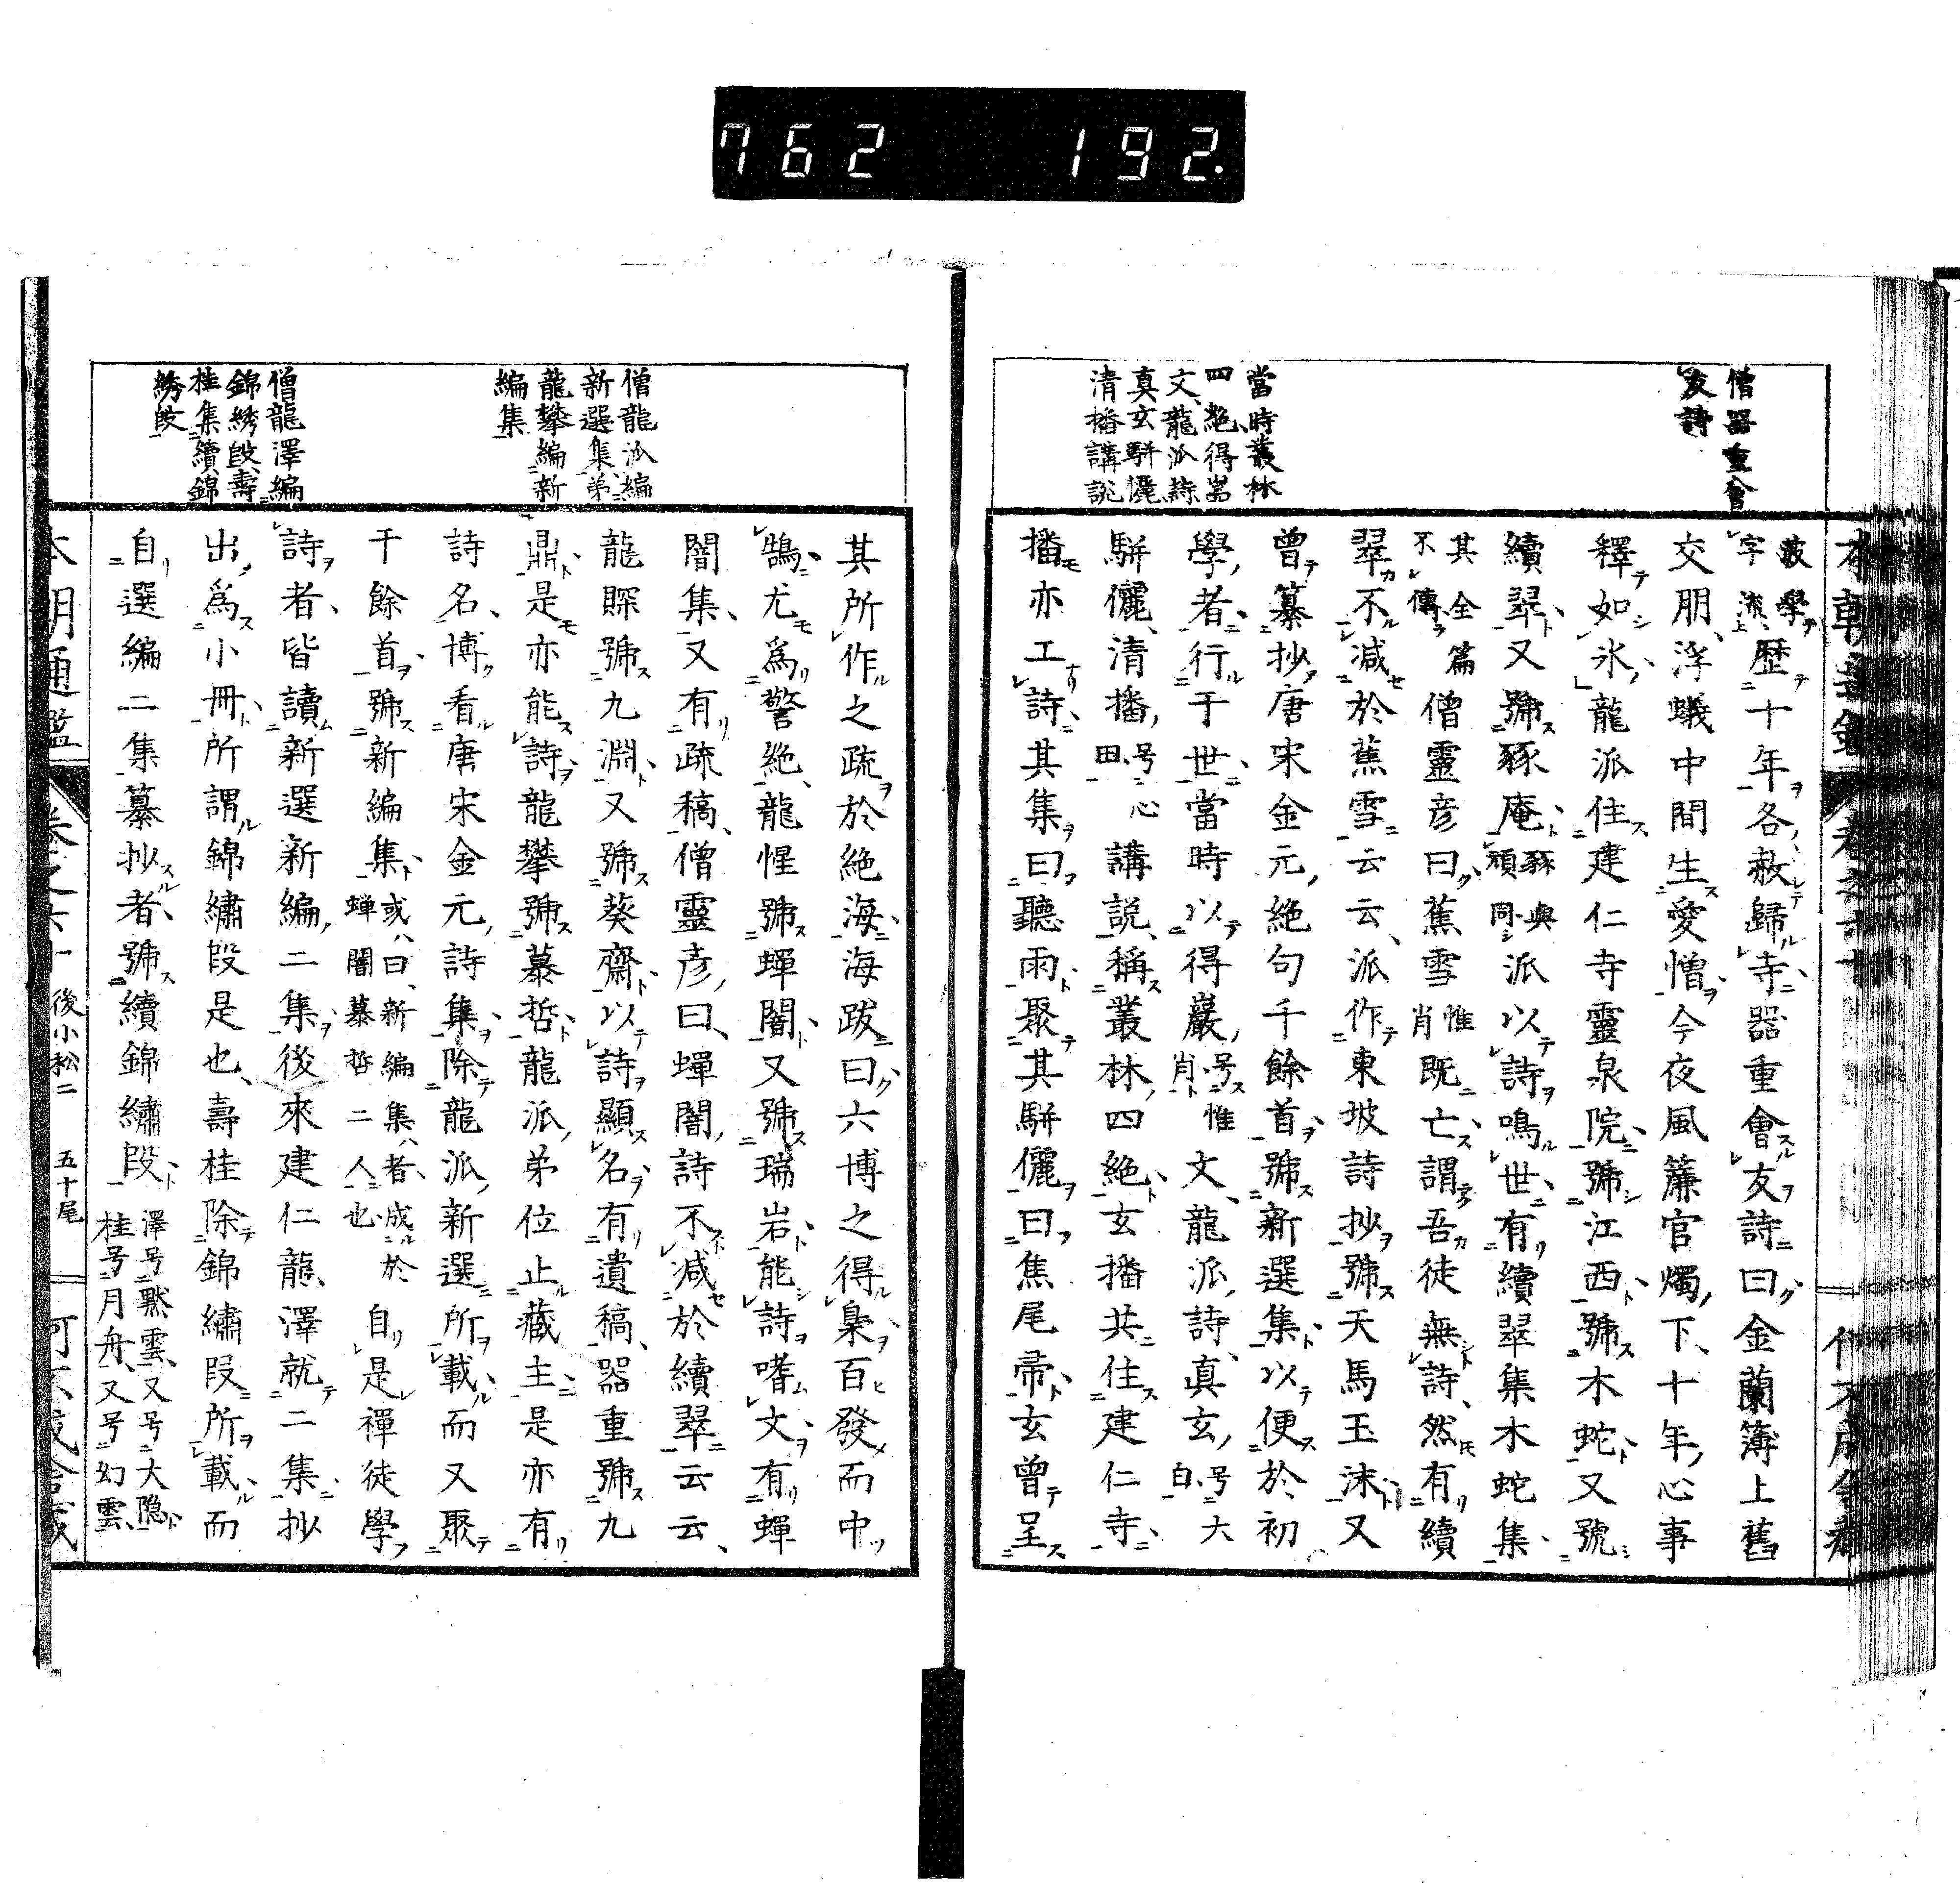 762 192.
僧器重會
友詩
當時叢林
四絶得嵓
文、龍派詩
真玄駢儷
清播講説
波學
字流歷十年各赦歸寺器重會友詩曰金蘭簿上舊
交朋浮蟻中間生愛憎今夜風簾官燭下十年心事
釋如氷龍派住建仁寺靈泉院號江西號木蛇又號
續翠又號豩庵豩與頑同派以詩鳴世有續翠集木蛇集
其全篇不傳僧靈彦曰蕉雪惟肖既亡謂吾徒無詩然有續
翠不減於蕉雪云云派作東坡詩抄號天馬玉沫又
曾纂抄唐宋金元絶句千餘首號新選集以便於初
學者行于世當時以得巖号惟肖文龍派詩真玄号大白
駢儷清播号心田講説稱叢林四絶玄播共住建仁寺
播亦工詩其集曰聽雨聚其駢儷曰焦尾帚玄曾呈
僧龍派編
新選集弟
龍攀編新
編集
僧龍澤編
錦綉段壽
桂集續錦
綉段
其所作之疏於絶海海跋曰六博之得梟百發而中
鵠尤爲警絶龍惺號蟬闇又號瑞岩能詩嗜文有蟬
闇集又有疏稿僧靈彦曰蟬闇詩不減於續翠云云
龍賝號九淵又號葵齋以詩顯名有遺稿器重號九
鼎是亦能詩龍攀號慕哲龍派弟位止藏主是亦有
詩名博看唐宋金元詩集除龍派新選所載而又聚
千餘首號新編集或曰新編集者成於蟬闇慕哲二人也自是禪徒學
詩者皆讀新選新編二集後來建仁龍澤就二集抄
出爲小冊所謂錦繡段是也壽桂除錦繡段所載而
自選編二集纂抄者號續錦繡段澤号黙雲又号大隱桂号月舟又号幻雲
本朝通鑑 卷之六十 後小松二 五十尾